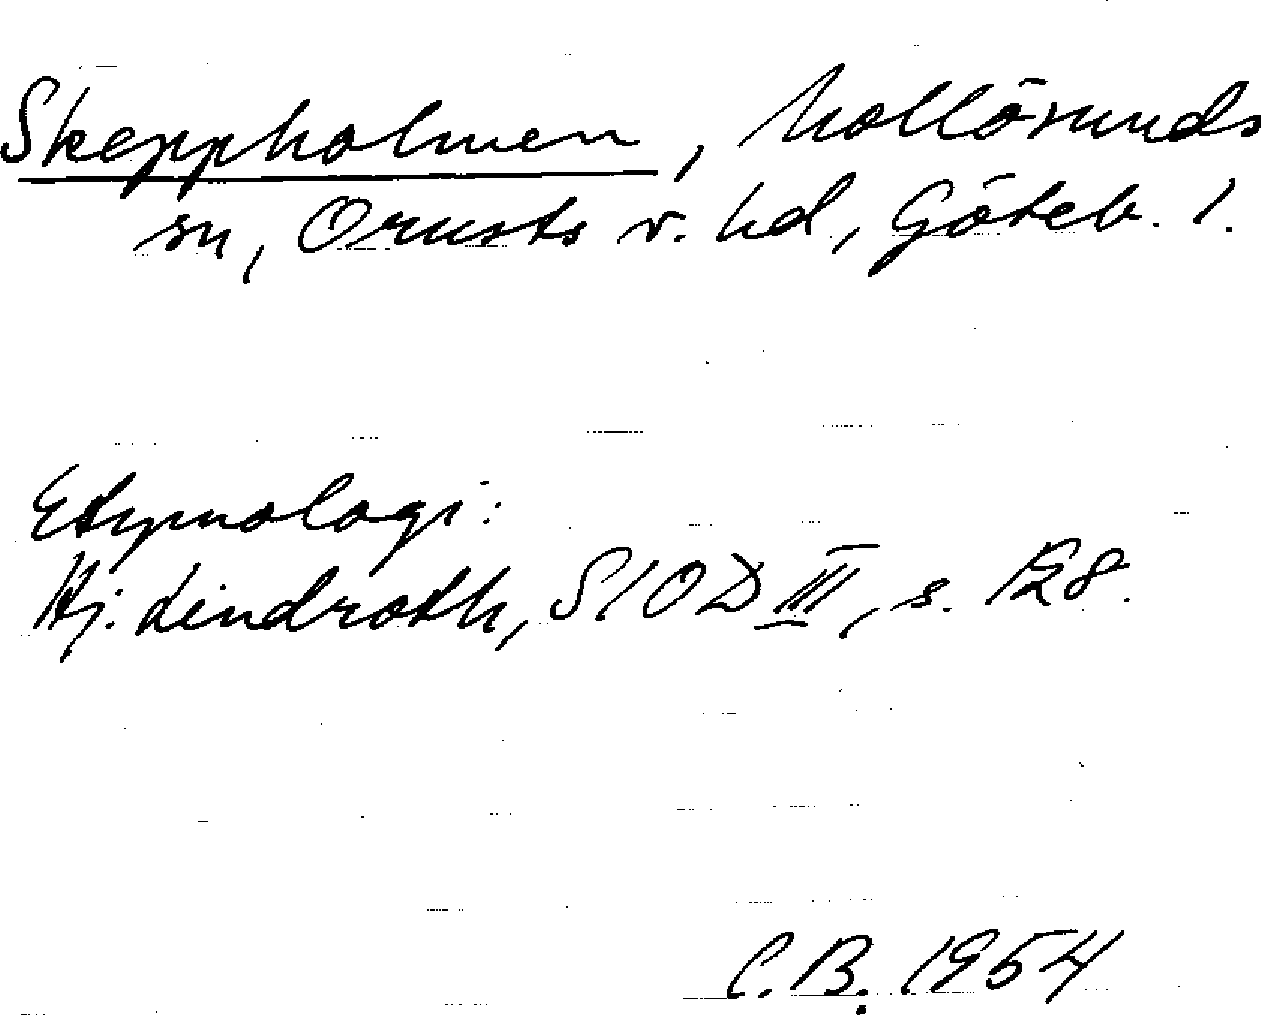 Skeppholmen, Mollösunds
sn, Orusts v. hd, Göteb. l.
Etymologi:
Hj. Lindroth, SIOD III, s. 128.
C.B. 1954